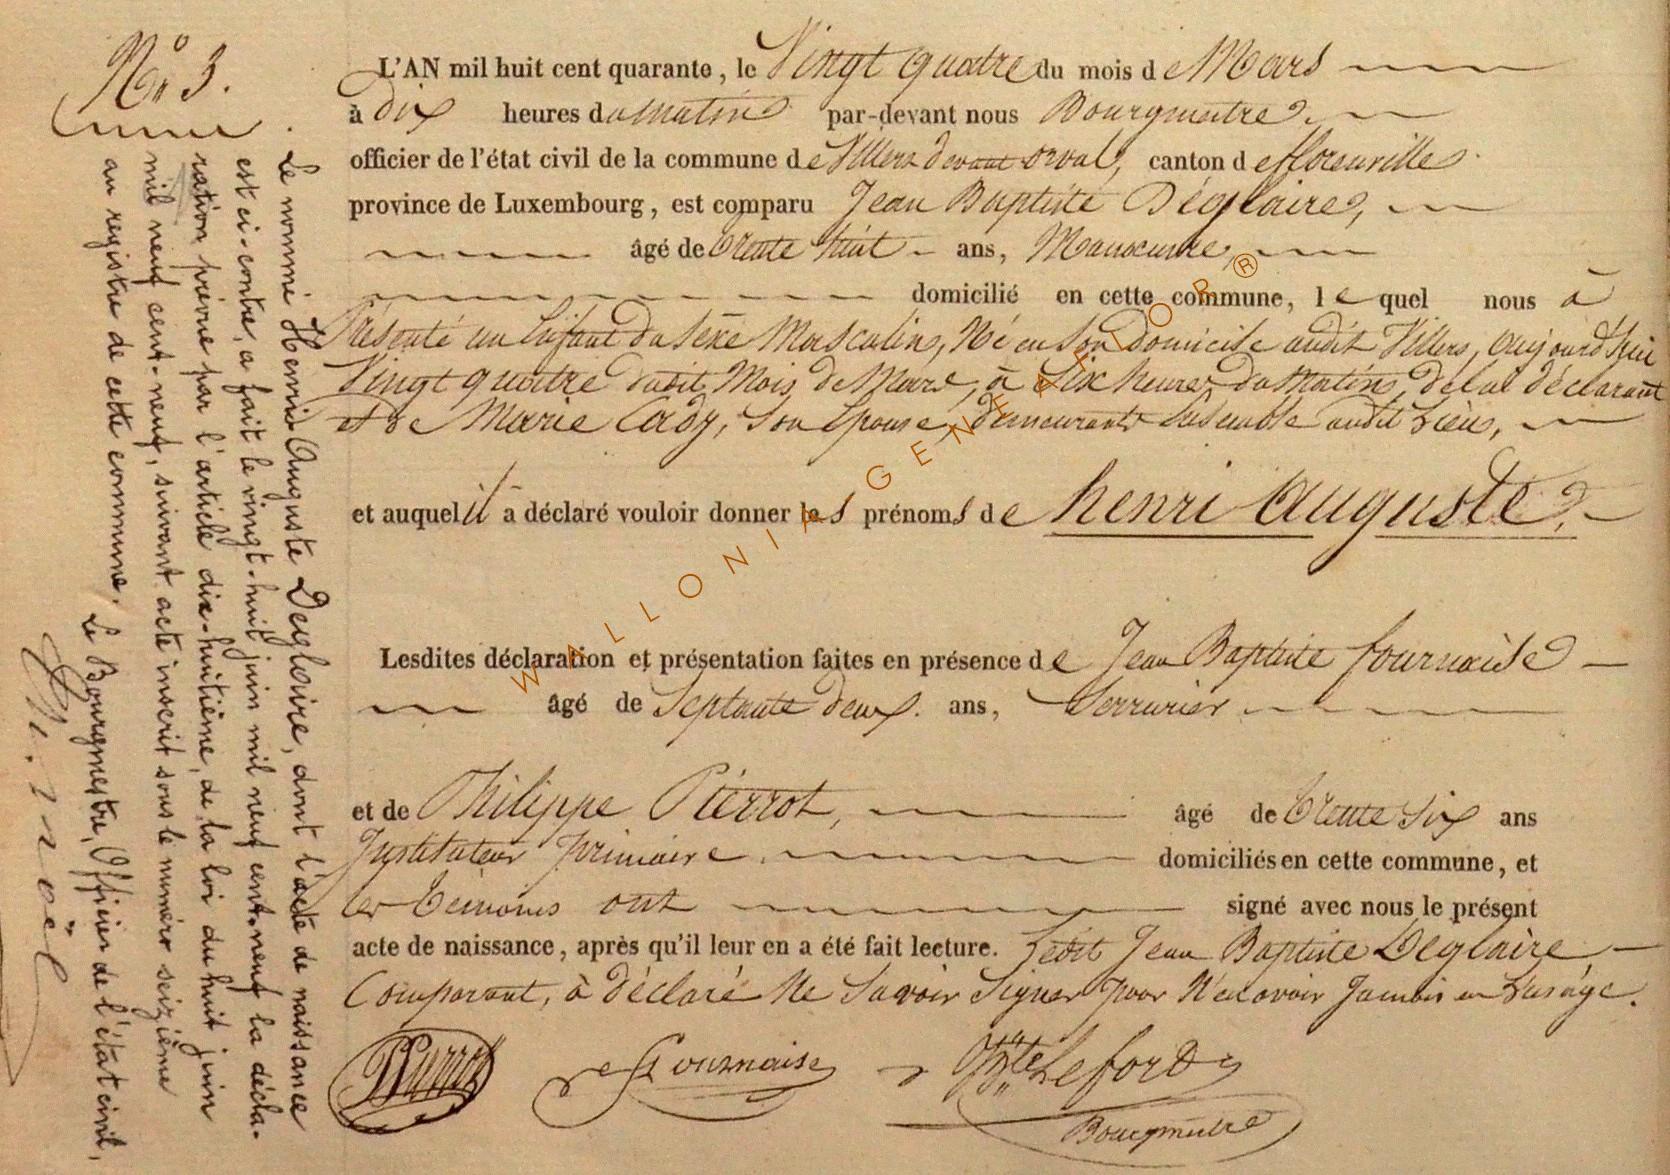 N° 3.
L'AN mil huit cent quarante, le Vingt quatre du mois de Mars
à dix heures du matin par-devant nous Bourgmeitre,
officier de l'état civil de la commune de Villers devant orval, canton de florenville
province de Luxembourg, est comparu Jean Baptiste Déglaire,
âgé de trente huit ans, Manoeuvre,
domicilié en cette commune, lequel nous à
Présenté un Enfant du sexe Masculin, Né en son domicile audit Villers, aujourd'hui
Vingt quatre dudit Mois de Mars, à Six heures du Matin, de lui déclarant
et de Marie Cady, son Epouse, demeurants Ensemble audit Lieu,
et auquel il a déclaré vouloir donner les prénoms de henri auguste.
Lesdites déclaration et présentation faites en présence de Jean Baptiste fournaise
âgé de Septante deux ans, Serrurier
et de Philippe Pierrot, âgé de trente six ans
Instituteur primaire domiciliés en cette commune, et
les témoins ont signé avec nous le présent
acte de naissance, après qu'il leur en a été fait lecture. Ledit Jean Baptiste Déglaire
Comparant, à déclaré Ne Savoir Signer pour N'en avoir Jamais eu L'usage.
Pierrot Fournaise Lefort
Bourgmeitre
Le nommé Henri Auguste Degloire, dont l'acte de naissance
est ci-contre, a fait le vingt-huit juin mil neuf cent-neuf la décla-
ration prévue par l'article dix-huitième, de la loi du huit juin
mil neuf cent-neuf, suivant acte inscrit sous le numéro seizième
au registre de cette commune. Le Bourgmestre, Officier de l'état civil,
WALLONIA GENEAFIOR ®